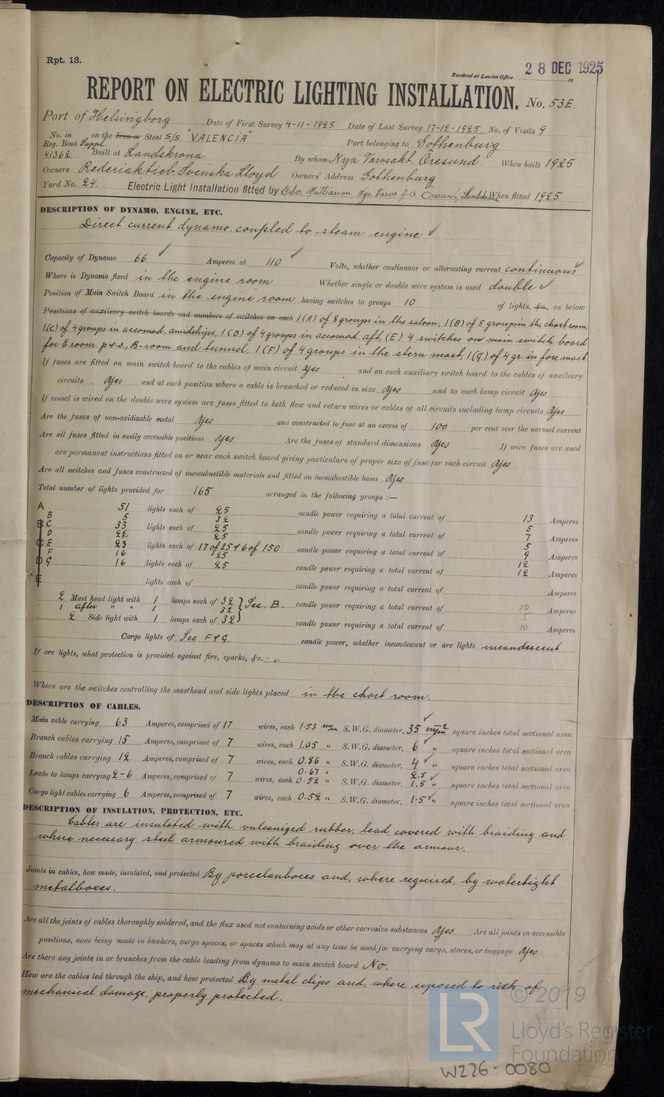 Rpt. 13.
Received at London Office 28 DEC 1925
REPORT ON ELECTRIC LIGHTING INSTALLATION. No. 53E
Port of Helsingborg Date of First Survey 4-11-1925 Date of Last Survey 17-12-1925 No. of Visits 9
No. in Reg. Book Suppl. 41362 on the Iron or Steel S/S "VALENCIA" Port belonging to Gothenburg
Built at Landskrona By whom Nya Varvsakt. Oresund When built 1925
Owners Rederiaktieb. Svenska Lloyd Owners' Address Gothenburg
Yard No. 24. Electric Light Installation fitted by Nya Varvs A-B. Oresund, When fitted 1925
DESCRIPTION OF DYNAMO, ENGINE, ETC.
Direct current dynamo coupled to steam engine
Capacity of Dynamo 66 Amperes at 110 Volts, whether continuous or alternating current continuous
Where is Dynamo fixed in the engine room Whether single or double wire system is used double
Position of Main Switch Board in the engine room having switches to groups 10 of lights, &c., as below
Positions of auxiliary switch boards and numbers of switches on each 1 (A) of 8 groups in the saloon, 1 (B) of 5 groups in the chart room,
1 (C) of 4 groups in accomod. amidships, 1 (D) of 4 groups in accomod. aft, (E) 4 switches on main switch board
for E room p & s, B-room and tunnel, 1 (F) of 4 groups in the stern mast, 1 (G) of 4 gr. in fore mast
If fuses are fitted on main switch board to the cables of main circuit Yes and on each auxiliary switch board to the cables of auxiliary
circuits Yes and at each position where a cable is branched or reduced in size Yes and to each lamp circuit Yes
If vessel is wired on the double wire system are fuses fitted to both flow and return wires or cables of all circuits including lamp circuits Yes
Are the fuses of non-oxidizable metal Yes and constructed to fuse at an excess of 100 per cent over the normal current
Are all fuses fitted in easily accessible positions Yes Are the fuses of standard dimensions Yes If wire fuses are used
are permanent instructions fitted on or near each switch board giving particulars of proper size of fuse for each circuit Yes
Are all switches and fuses constructed of incombustible materials and fitted on incombustible bases Yes
Total number of lights provided for 165 arranged in the following groups :—
A 51 lights each of 25 candle power requiring a total current of 13 Amperes
B 5 32 5
C 33 lights each of 25 candle power requiring a total current of 7 Amperes
D 21 25 5
E 23 lights each of 17 of 25 + 6 of 150 candle power requiring a total current of 9 Amperes
F 16 25 12
G 16 lights each of 25 candle power requiring a total current of 12 Amperes
E lights each of candle power requiring a total current of Amperes
2 Mast head light with 1 lamps each of 32 See B. candle power requiring a total current of 10 Amperes
1 after " " 1 32 5
2 Side light with 1 lamps each of 32 candle power requiring a total current of 10 Amperes
Cargo lights of See F & G. candle power, whether incandescent or arc lights incandescent
If arc lights, what protection is provided against fire, sparks, &c.
Where are the switches controlling the masthead and side lights placed in the chart room.
DESCRIPTION OF CABLES.
Main cable carrying 63 Amperes, comprised of 17 wires, each 1.53 m/m S.W.G. diameter, 35 square inches total sectional area
Branch cables carrying 15 Amperes, comprised of 7 wires, each 1.05 " S.W.G. diameter, 6 " square inches total sectional area
Branch cables carrying 12 Amperes, comprised of 7 wires, each 0.86 " S.W.G. diameter, 4 " square inches total sectional area
Leads to lamps carrying 2-6 Amperes, comprised of 7 wires, each 0.67 " 0.52 " S.W.G. diameter, 2.5 1.5 " square inches total sectional area
Cargo light cables carrying 6 Amperes, comprised of 7 wires, each 0.52 " S.W.G. diameter, 1.5 " square inches total sectional area
DESCRIPTION OF INSULATION, PROTECTION, ETC.
Cables are insulated with vulcanized rubber, lead covered with braiding and
where necessary steel armoured with braiding over the armour.
Joints in cables, how made, insulated, and protected By porcelainboxes and, where required, by watertight
metalboxes.
Are all the joints of cables thoroughly soldered, and the flux used not containing acids or other corrosive substances Yes Are all joints in accessible
positions, none being made in bunkers, cargo spaces, or spaces which may at any time be used for carrying cargo, stores, or baggage Yes
Are there any joints in or branches from the cable leading from dynamo to main switch board No.
How are the cables led through the ship, and how protected By metal clips and, where exposed to risk of
mechanical damage, properly protected.
LR © 2019
Lloyd's Register
Foundation
W226-0080